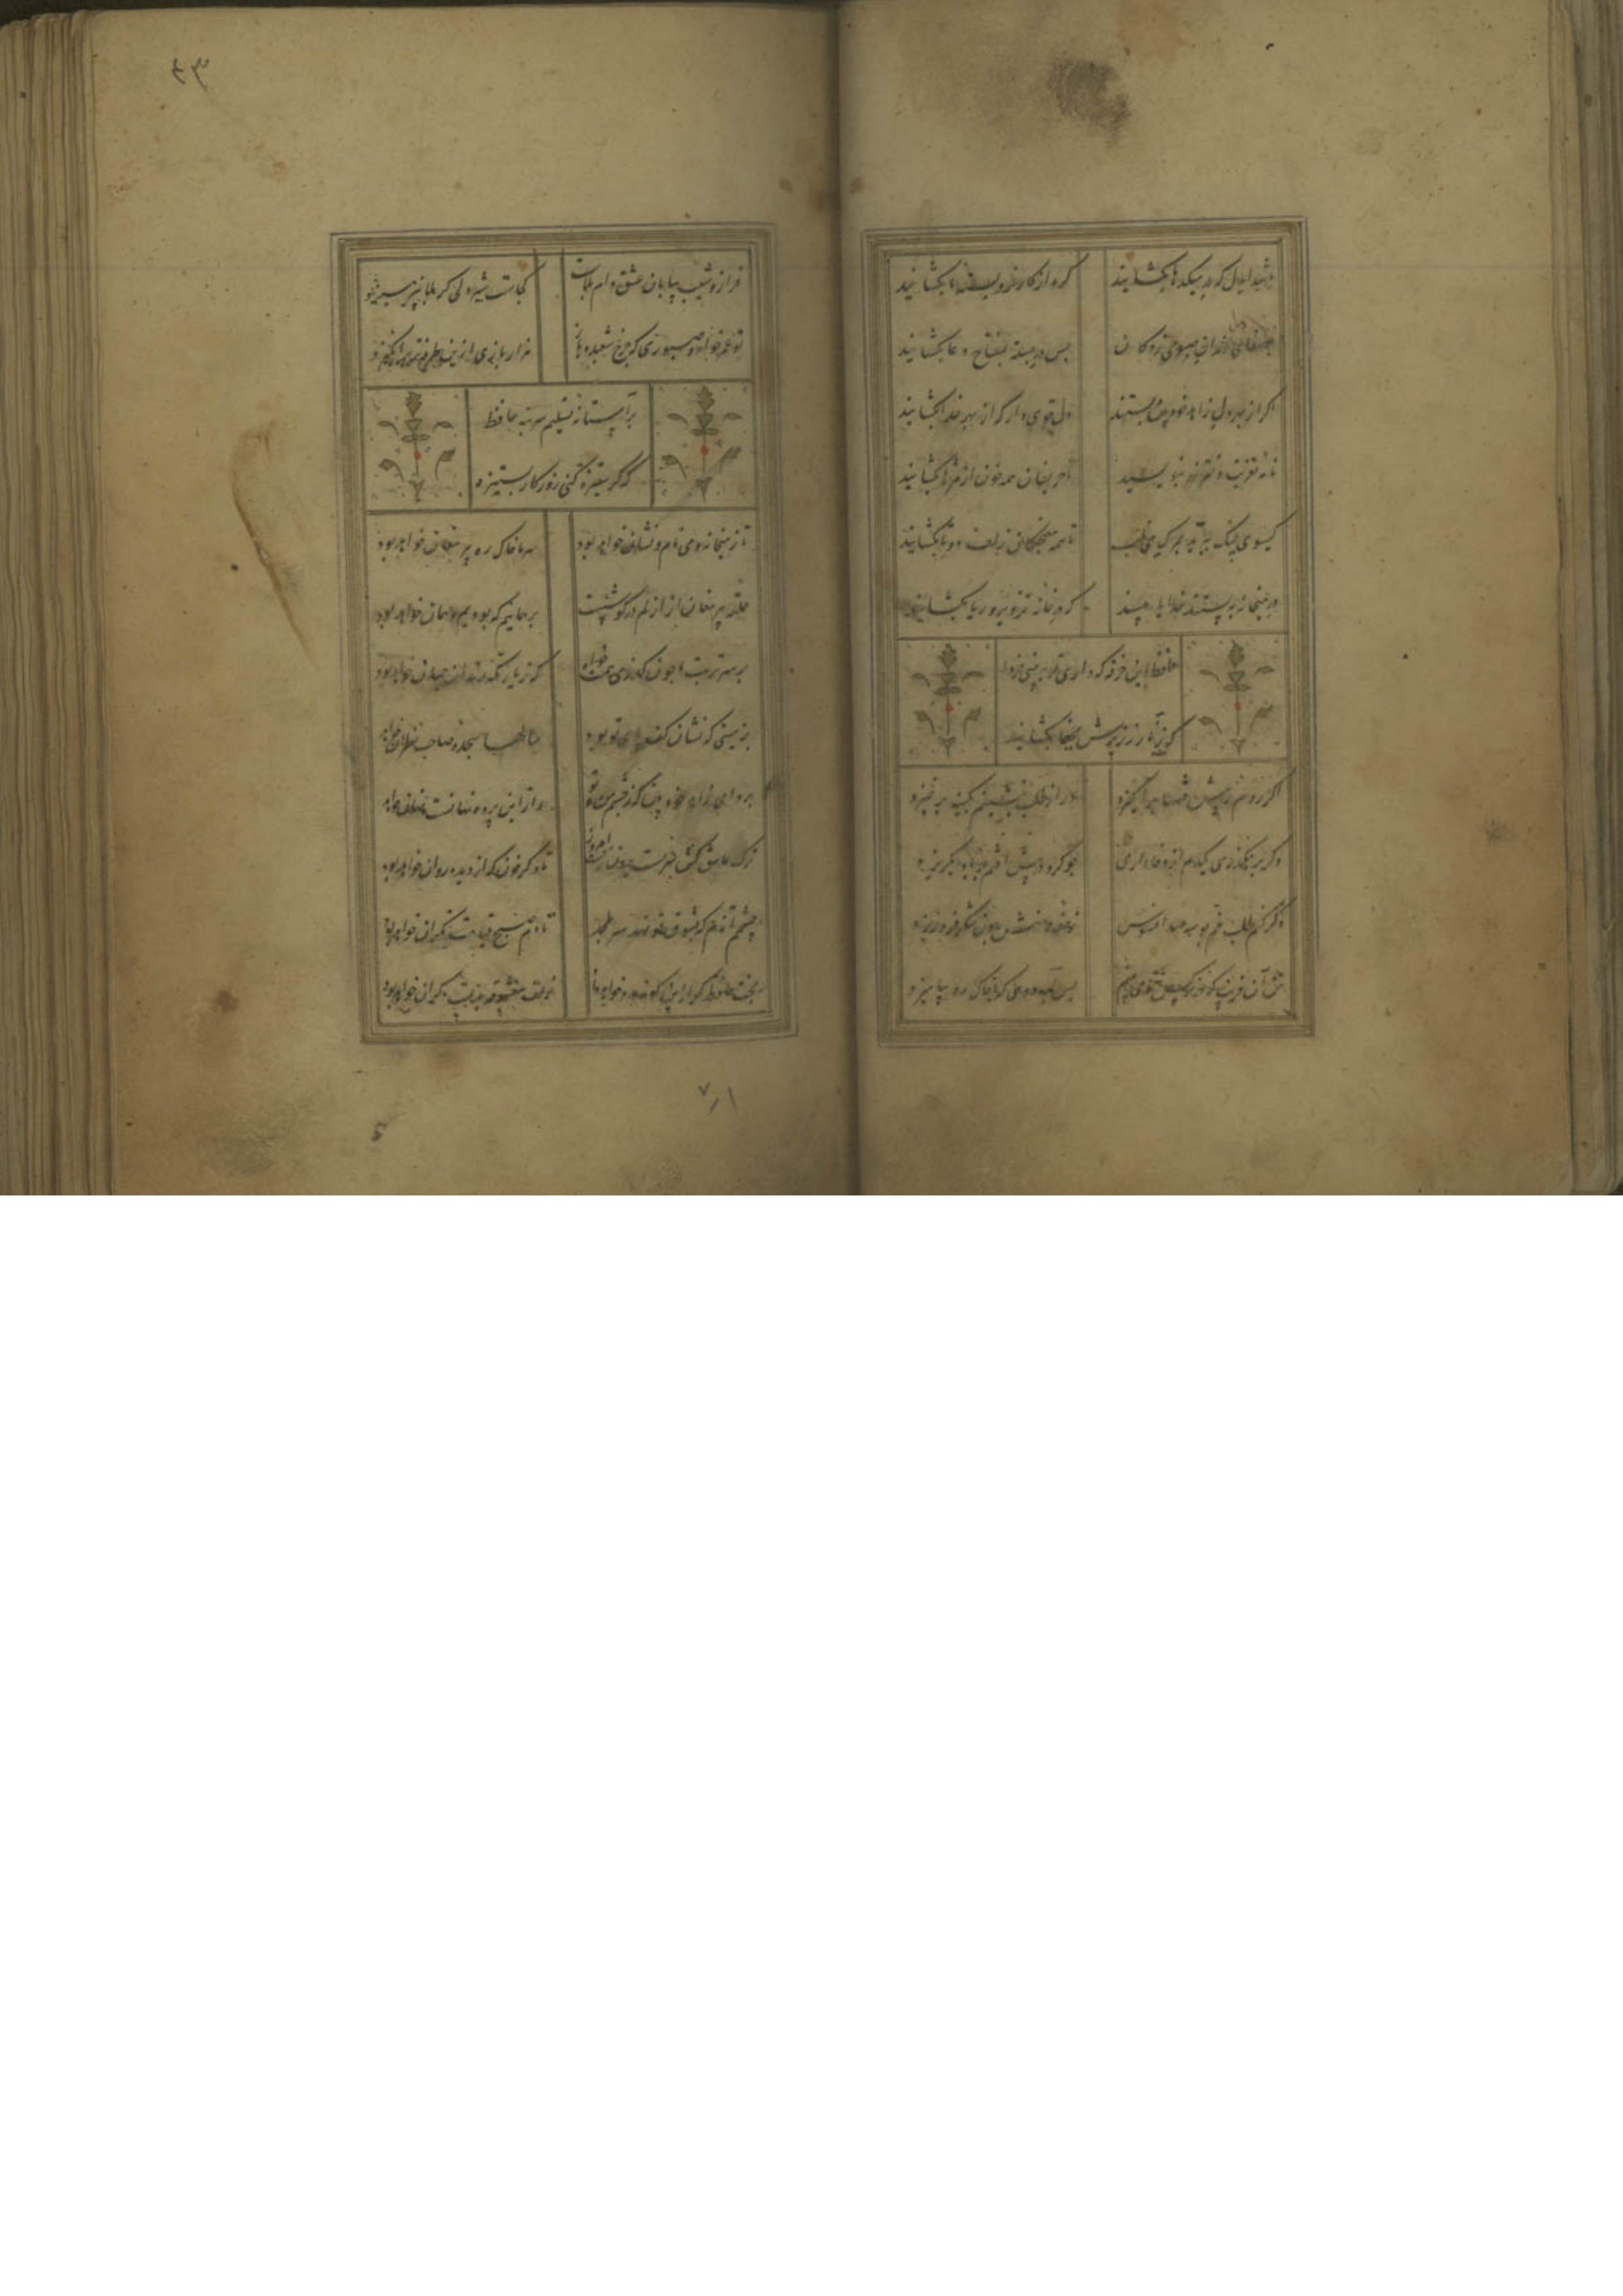 باشد ایدل که در میکدها بکشایند گره از کار فرو بسته ما بکشایند
بصفای دل رندان صبوحی زدکان بس در بسته بمفتاح دعا بکشایند
اکر از بهر دل زاهد خودبین بستند دل قوی دار که از بهر خدا بکشایند
نامه تعزیت دختر رز بنویسید تا حریفان همه خون از مژها بکشایند
کیسوی چنک ببرید بمرک می ناب تا همه مغبچکان زلف دوتا بکشایند
در میخانه ببستند خدایا مپسند که در خانه تزویر و ریا بکشایند
حافظ این خرقه که داری تو ببینی فردا
که چه زنار ز زیرش بجفا بکشایند
اکر روم ز پیش فتنها برانکیزد ور از طلب بنشینم بکینه برخیزد
وکر برهکذری یکدم از وفاداری چو کرد در پیش افتم چو باد بکریزد
وکر کنم طلب نیم بوسه صد افسوس ز حقه دهنش چون شکر فرو ریزد
من آن فریب که در نرکس تو می بینم بس آب روی که با خاک ره بیامیزد
۴۳
فراز و شیب بیابان عشق دام بلاست کجاست شیردلی کز بلا نپرهیزد
تو عمر خواه و صبوری که چرخ شعبده باز هزار بازی ازین طرفه تر برانکیزد
بر آستانه تسلیم سر بنه حافظ
که کر ستیزه کنی روزکار بستیزد
تا ز میخانه و می نام و نشان خواهد بود سر ما خاک ره پیر مغان خواهد بود
حلقه پیر مغان از ازلم در کوشست بر همانیم که بودیم و همان خواهد بود
بر سر تربت ما چون کذری همت خواه که زیارتکه رندان جهان خواهد بود
بر زمینی که نشان کف پای تو بود سالها سجده صاحب نظران خواهد
برو ای زاهد خودبین که ز چشم من و تو راز این پرده نهانست و نهان خواهد
ترک عاشق کش من مست برون رفت امروز تا دکر خون که از دیده روان خواهد بود
چشمم آندم که ز شوق تو نهد سر بلحد تا دم صبح قیامت نکران خواهد بود
بخت حافظ کر ازین کونه مدد خواهد داد زلف معشوقه بدست دکران خواهد بود